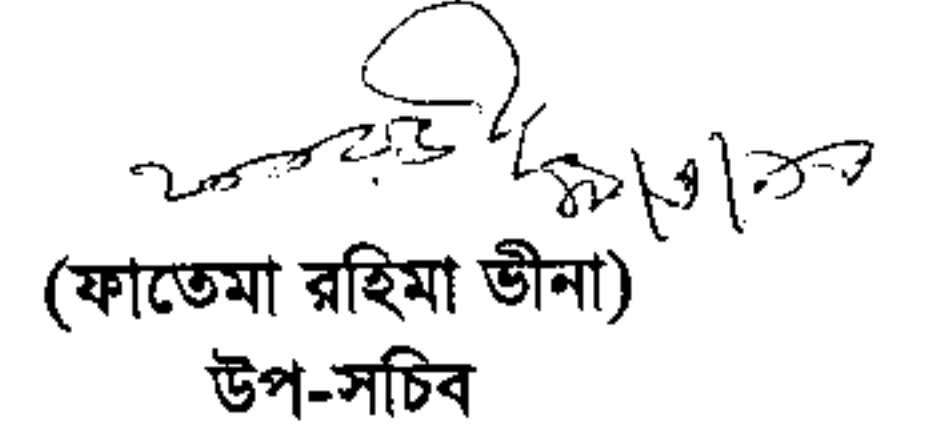 (ফাতেমা রহিমা ভীনা)
উপ-সচিব